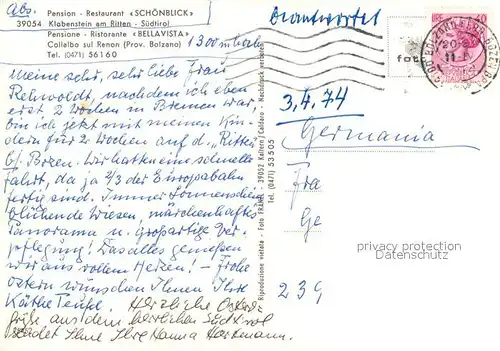 Abs. Pension - Restaurant «SCHÖNBLICK»
39054 Klobenstein am Ritten - Südtirol
Pensione - Ristorante «BELLAVISTA»
Collalbo sul Renon (Prov. Bolzano)
Tel. (0471) 56160
1300 m hoch
Meine sehr, sehr liebe Frau
Rehwoldt, nachdem ich eben
erst 2 Wochen in Bremen war,
bin ich jetzt mit meinen Kin-
dern für 2 Wochen auf d. „Ritten"
b/ Bozen. Wir hatten eine schnelle
Fahrt, da ja 2/3 der Europabahn
fertig sind. Immer Sonnenschein
blühende Wiesen, märchenhaftes
Panorama u. großartige Ver-
pflegung! Das alles genießen
wir aus vollem Herzen! – Frohe
Ostern wünschen Ihnen Ihre
Käthe Teufel. Herzliche Oster-
grüße aus dem herrlichen Südtirol
sendet Ihnen Ihre Hanna Hartmann.
Riproduzione vietata - Foto FRANK - 39052 Kaltern/Caldaro - Nachdruck verboten
Tel. (0471) 53505
beantwortet
3.4.74
foto
40
Germania
Fra
Ge
239
privacy protection
watermark